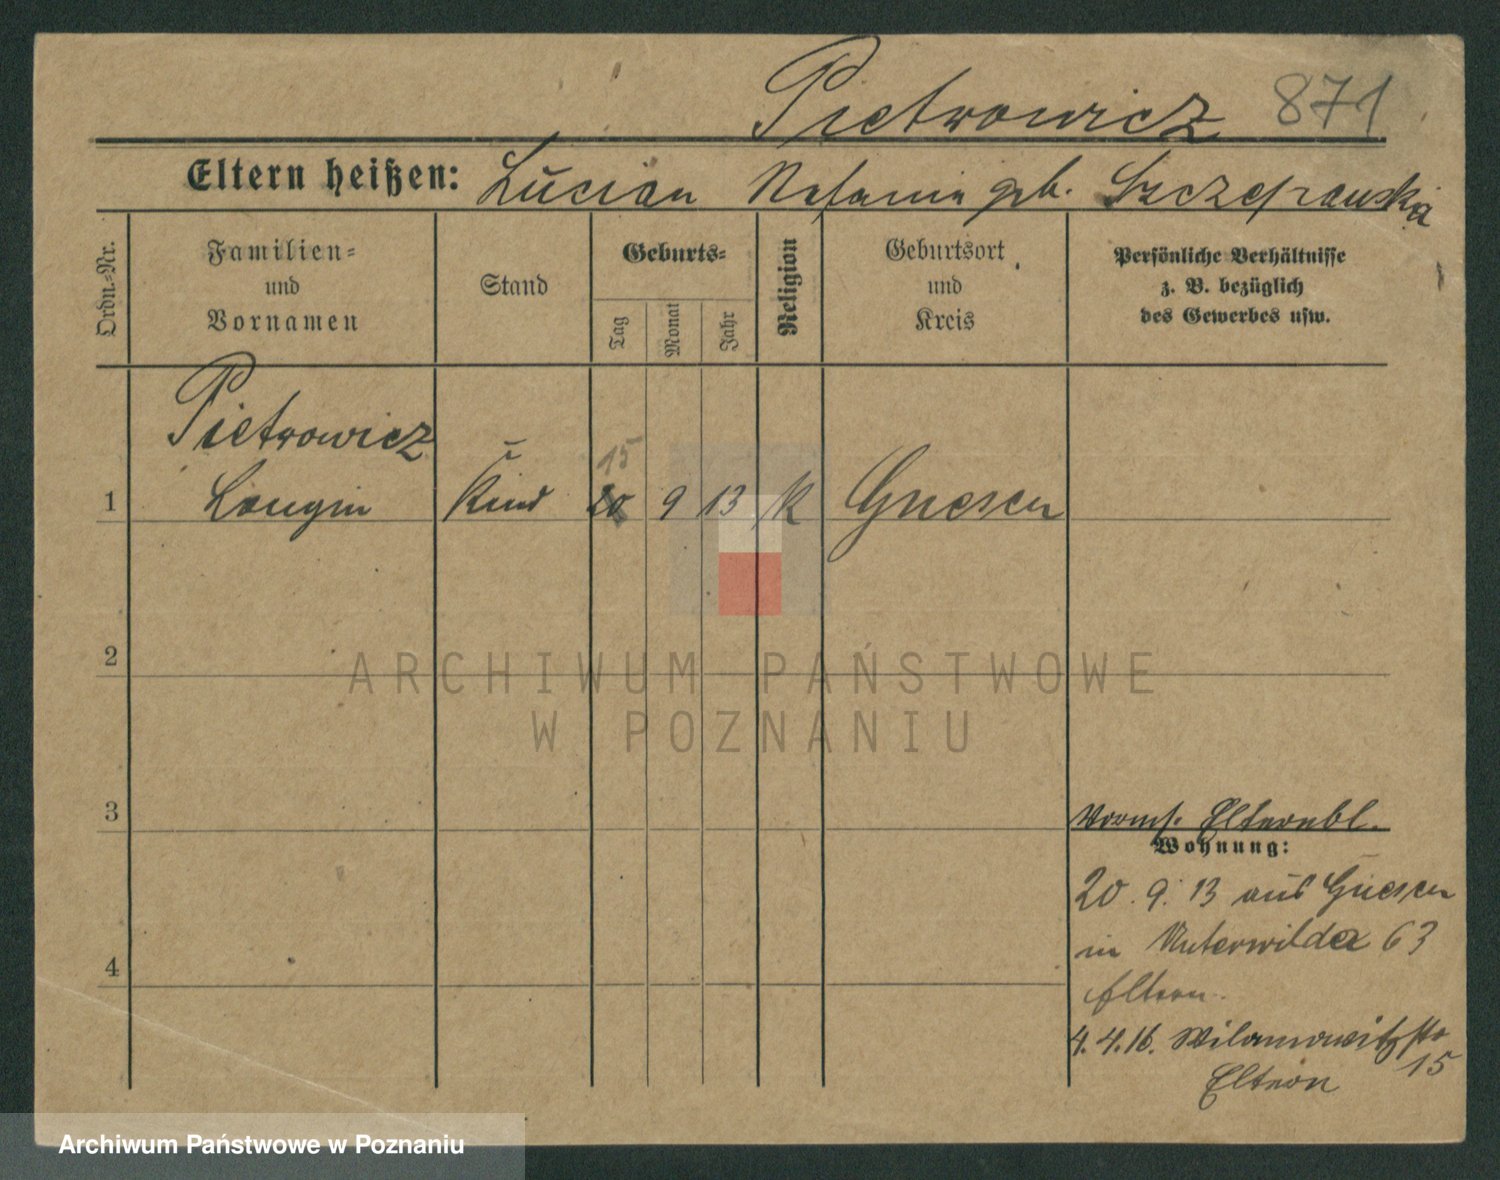 Pietrowicz 871
Eltern heißen: Lucian Stefania geb. Szczepanska
Ordn.-Nr.
Familien-
und
Vornamen
Stand
Geburts-
Tag
Monat
Jahr
Religion
Geburtsort
und
Kreis
Persönliche Verhältnisse
z. B. bezüglich
des Gewerbes usw.
Pietrowicz
15
1 Longin Kind 20 9 13 K Gnesen
2
3
Elternbl.
Wohnung:
20. 9. 13 aus Gnesen
in Unterwilda 63
Eltern.
4
4. 4. 16. Wilamowitzstr
15
Eltern
ARCHIWUM PAŃSTWOWE
W POZNANIU
Archiwum Państwowe w Poznaniu